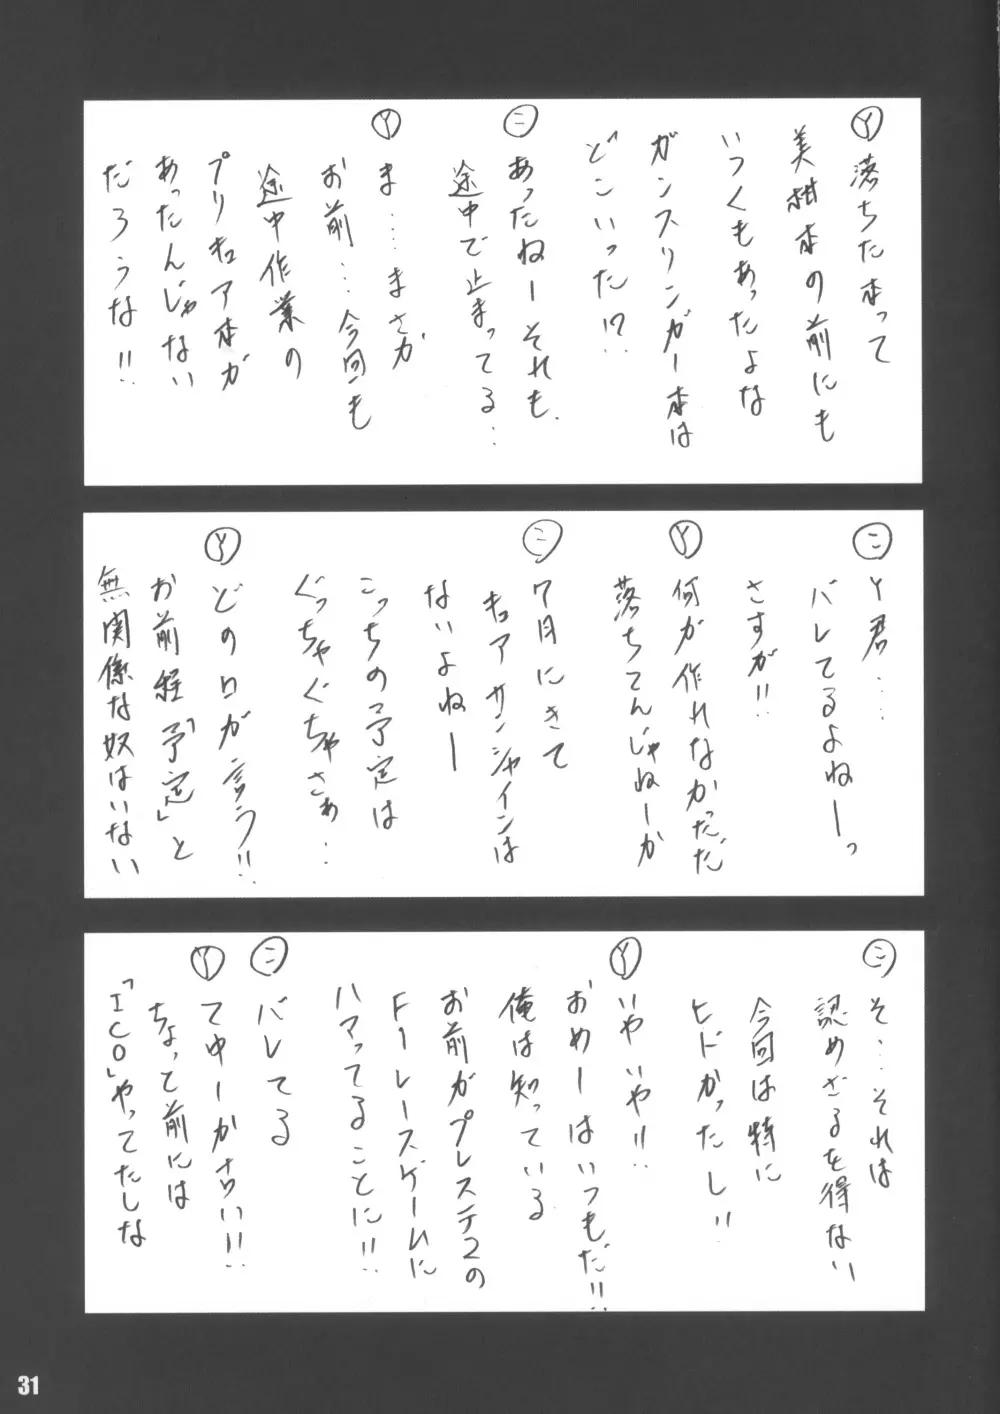 Ⓨ落ちた本って
美柑本の前にも
いつくもあったよな
ガンスリンガー本は
どこいった!?
㊁あったねーそれも
途中で止まってる…
Ⓨま…まさか
お前…今回も
途中作業の
プリキュア本が
あったんじゃない
だろうな!!
㊁Y君…
バレてるよねーっ
さすが!!
Ⓨ何が作れなかっただ
落ちてんじゃねーか
㊁7月にきて
キュアサンシャインは
ないよねー
こっちの予定は
ぐっちゃぐちゃさぁ…
Ⓨどの口が言う!!
お前程「予定」と
無関係な奴はいない
㊁そ…それは
認めざるを得ない
今回は特に
ヒドかったし!!
Ⓨいやいや!!
おめーはいつもだ!!
俺は知っている
お前がプレステ2の
F1レースゲームに
ハマってることに!!
㊁バレてる
Ⓨて ゆーか古い!!
ちょって前には
「ICO」やってたしな
31